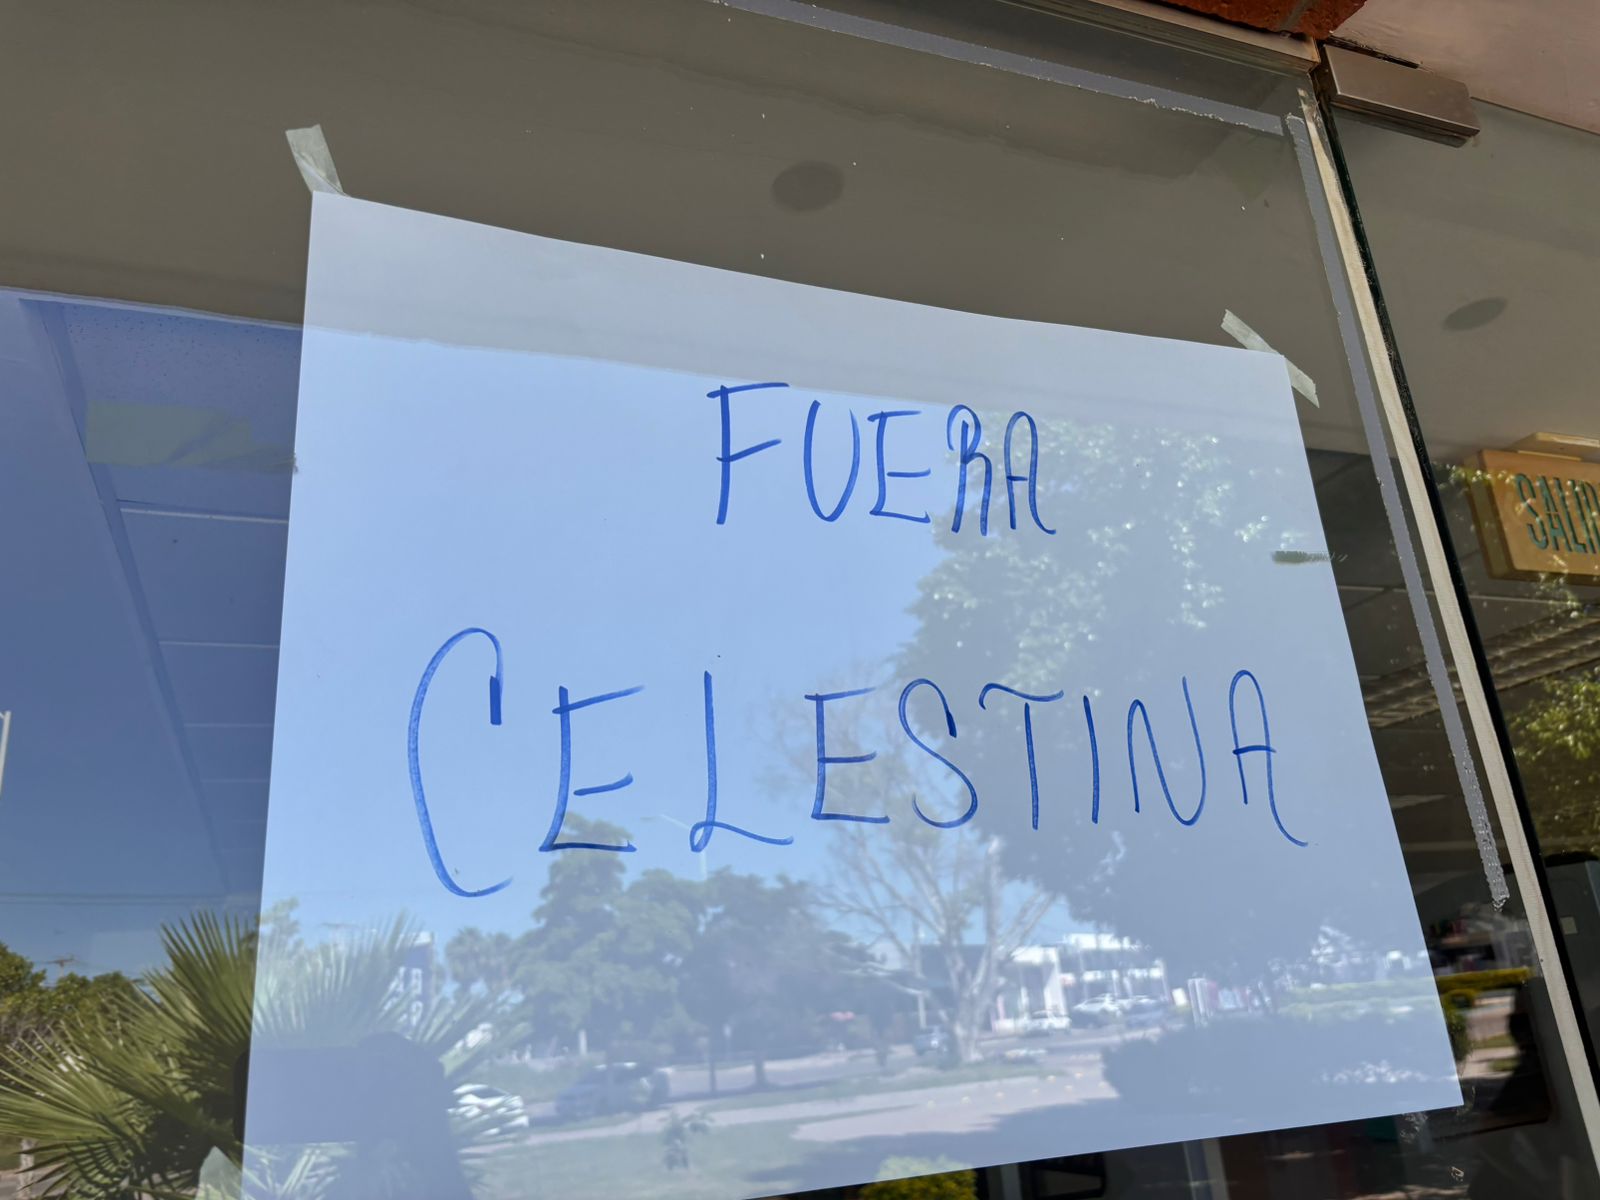 FUERA
CELESTINA
SALIDA